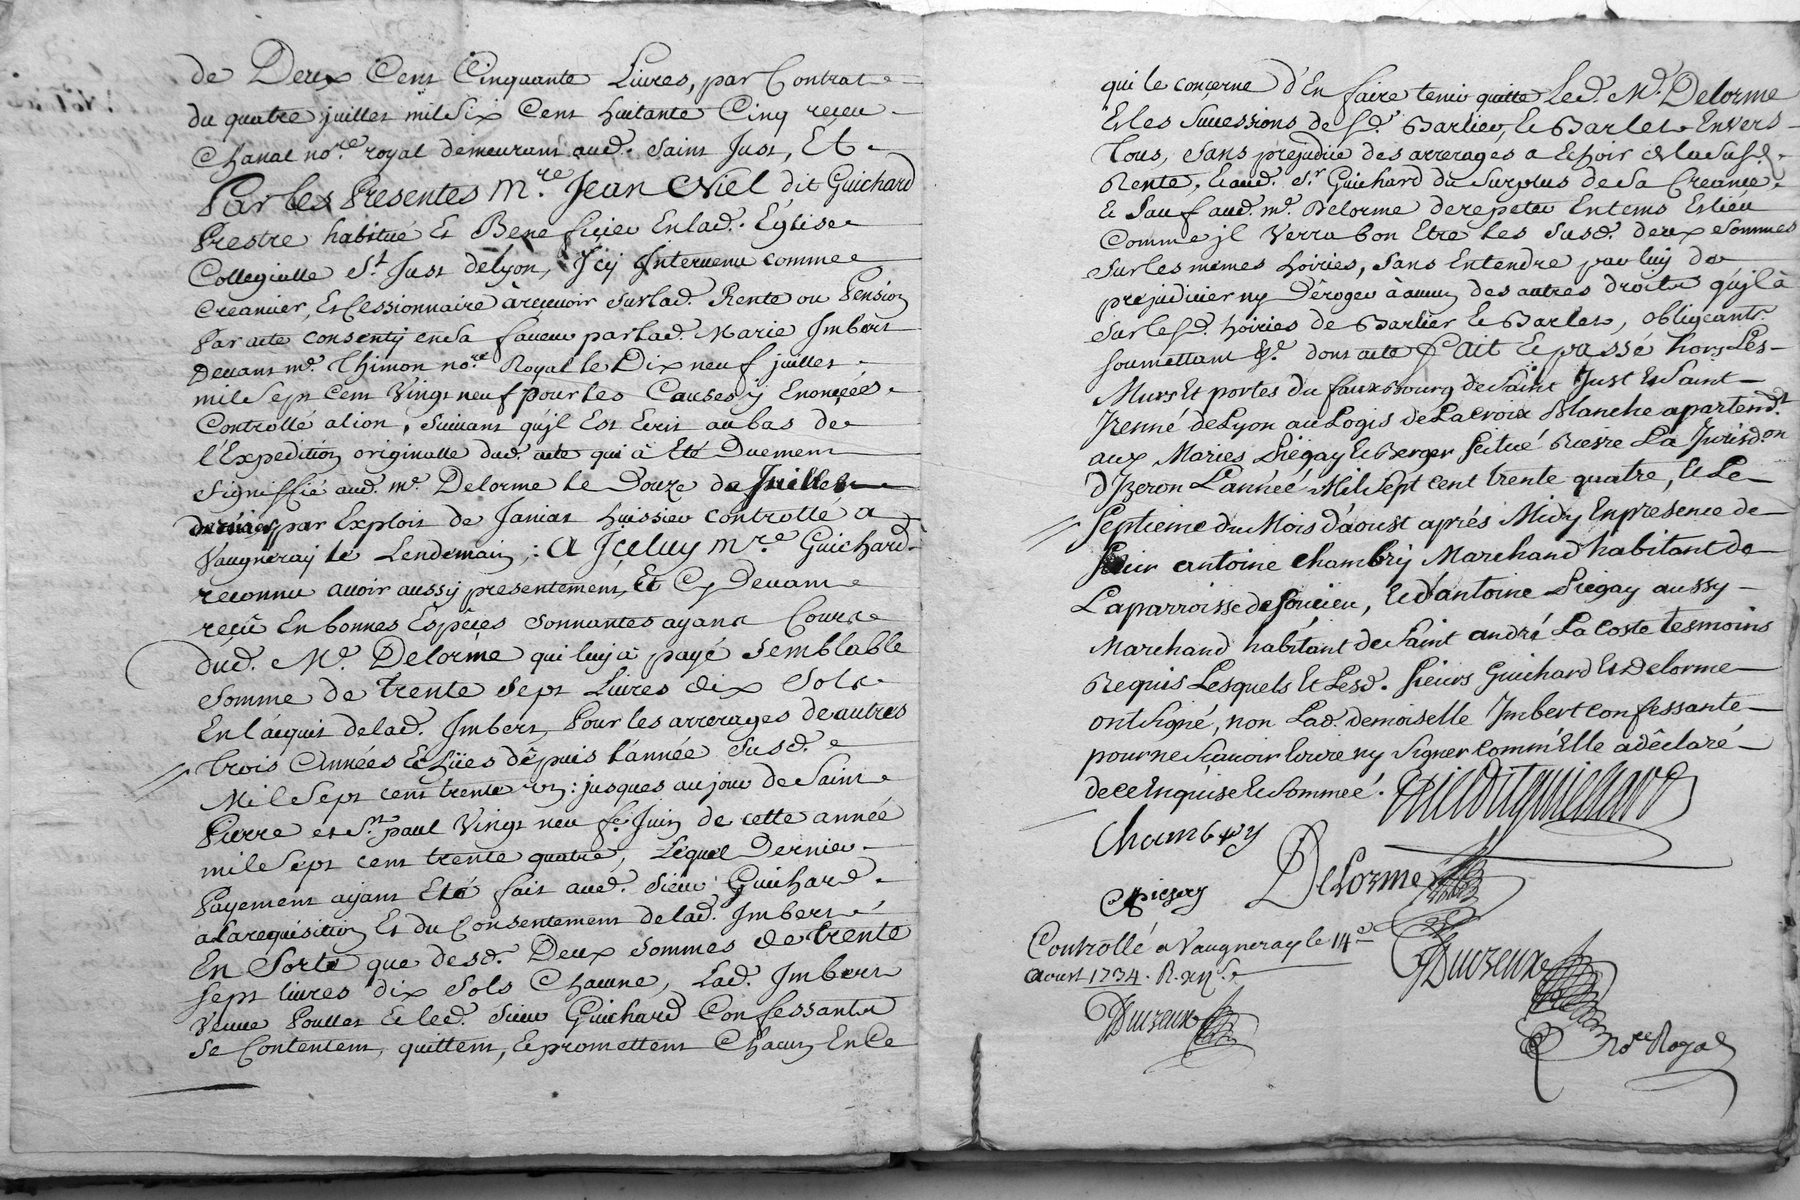 de Deux Cent Cinquante Livres, par Contrat
du quatre juillet mil Six Cent huitante Cinq reçeu
Chanal no.re royal demeurant aud. Saint Just, Et
Par les Presentes M.re Jean Viel dit Guichard
Prestre habitué Et Beneficier En lad. Eglise
Collegialle S.t Just de Lyon, Icy Intervenu comme
Creancier, Et Cessionnaire à recevoir sur lad. Rente ou Pension
Par acte consenty en sa faveur par lad. Marie Imbert
Devant m.e Thimon no.re Royal le Dix neuf juillet
mil Sept Cent Vingt neuf pour les Causes y Enoncéés
Controllé a lion, Suivant qu'jl Est Ecrit au bas de
l'Expedition originalle dud. acte qui à Eté Duement
Signiffié aud. m.e Delorme le Douze de Juillet
dernier par Exploit de Janiat huissier controllé a
Vaugneray le Lendemain; A Jceluy M.re Guichard
reconnu avoir aussy presentement, Et Cy Devant
reçû En bonnes Espèces Sonnantes ayant Cours
dud. M.e Delorme qui luy à payé Semblable
Somme de trente Sept Livres dix Sols
En l'acquit de lad. Imbert, Pour les arrerages de autres
trois Années Echües depuis l'année Susd.
Mil Sept cent trente un: jusques au jour de Saint
Pierre et S.t paul Vingt neuf Juin de cette année
mil Sept cent trente quatre, Lequel Dernier
Payement ayant Eté fait aud. Sieur Guichard
a La requisition Et du Consentement de lad. Imbert
En Sorte que desd. Deux Sommes de trente
Sept livres dix Sols Chacune, Lad. Imbert
Veuve Poullet & led. Sieur Guichard Confessants
Se Contentent, quittent, & promettent Chacun En Ce
qui le conçerne d'En faire tenir quitte Led. M.e Delorme
Et les Successions desd. Barlier, & Barlet Envers
Tous, Sans prejudice des arrerages a Echoir de la Susd.
Rente, & aud. S.r Guichard du Surplus de Sa Creance
& Sauf aud. m.e Delorme de repeter En tems Et lieu
Comme jl Verra bon Etre les Susd. deux Sommes
Sur les mêmes hoiries, Sans Entendre par luy de
prejudicier ny Deroger à aucun des autres droits qu'jl à
Sur lesd. hoiries de Barlier & Barlet, obligeants
Soumettant &.e dont acte Fait & passé hors Les
Murs Et portes du fauxbourg de Saint Just & Saint
Irenné de Lyon au Logis de La Croix Blanche apartend.t
aux Mariés Piégay & Berger Scitué Riere La Jurisd.on
d'Izeron L'année Mil Sept cent trente quatre, & Le
Septieme du Mois d'aoust aprés Midy En presence de
Sieur antoine Chambry Marchand habitant de
La parroisse de Soucieu, & d'antoine Piegay aussy
Marchand habitant de Saint andré La Coste tesmoins
Requis Lesquels Et Lesd. Sieurs Guichard Et Delorme
ont Signé, non Lad. demoiselle Imbert confessante
pour ne Sçavoir Ecrire ny Signer comm'Elle a dêclaré
de ce Enquise & Sommeé.
Viel dit guichard
Chambry
Delorme
Piegay
Controllé a Vaugneray le 14.e
Aoust 1734.
Durieux
Durieux
No.re Royal